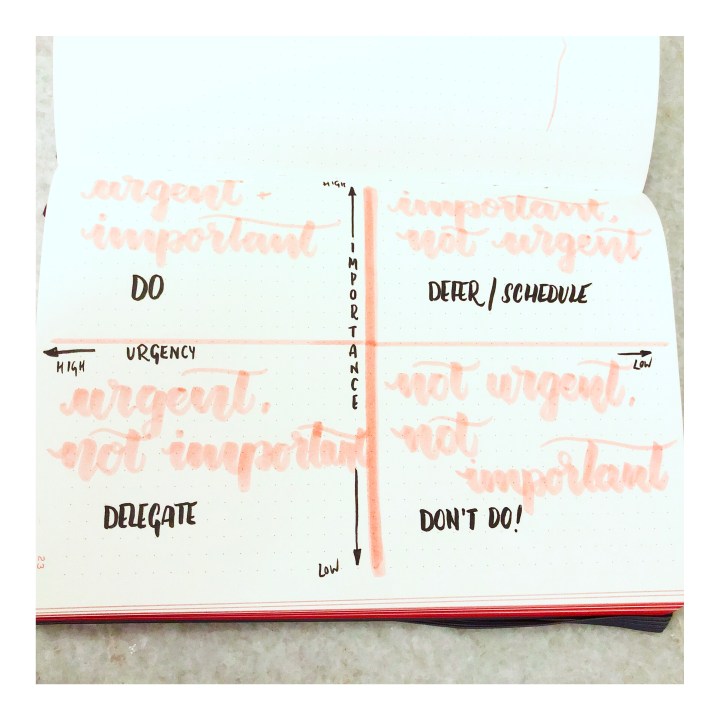 urgent -
important
DO
HIGH
IMPORTANCE
LOW
important,
not urgent
DEFER / SCHEDULE
HIGH
URGENCY
LOW
urgent,
not important
DELEGATE
not urgent,
not
important
DON'T DO!
23